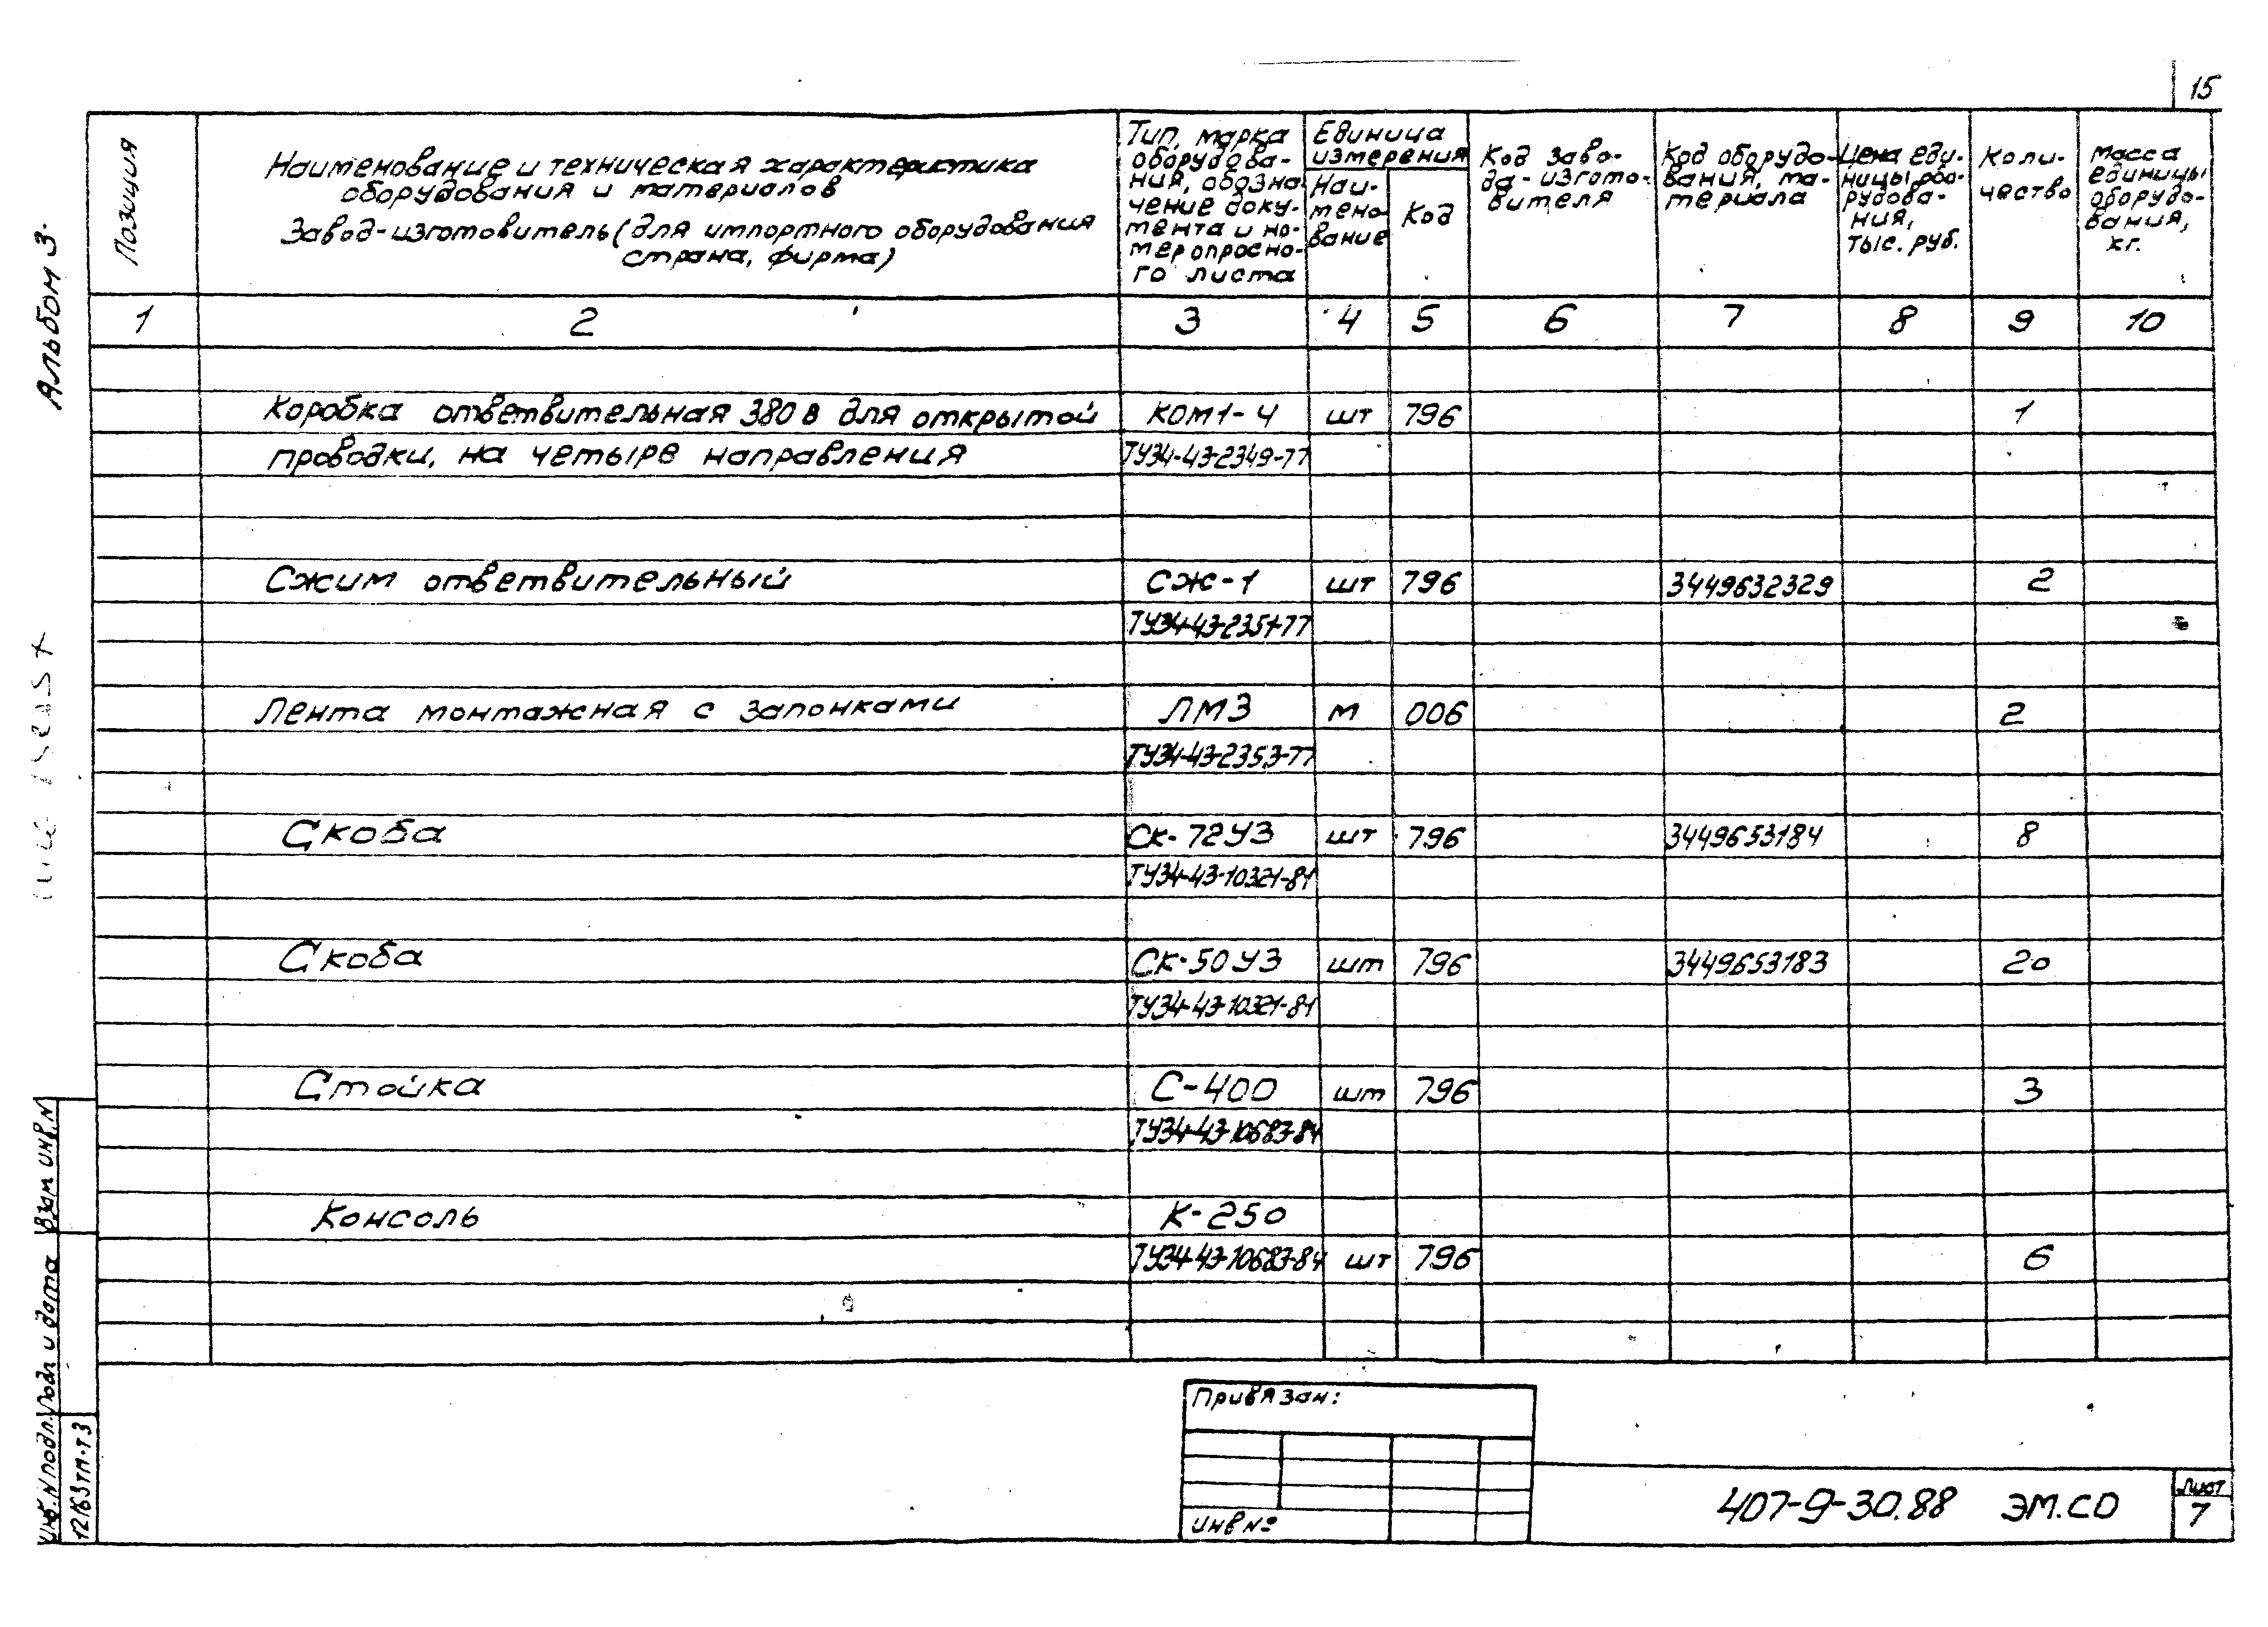 15
Альбом 3.
Позиция
Наименование и техническая характеристика
оборудования и материалов
Завод-изготовитель (для импортного оборудования
страна, фирма)
Тип, марка
оборудова-
ния, обозна
чение доку-
мента и но-
мер опросно-
го листа
Единица
измерения
Наи-
мено-
вание
Код
Код заво-
да-изгото-
вителя
Код оборудо-
вания, ма-
териала
Цена еди-
ницы обо-
рудова-
ния,
тыс. руб.
Коли-
чество
Масса
единицы
оборудо-
вания,
кг.
1 2 3 4 5 6 7 8 9 10
Коробка ответвительная 380 в для открытой КОМ1-4 шт 796 1
проводки, на четыре направления ТУ34-43-2349-77
Сжим ответвительный СЖ-1 шт 796 3449632329 2
ТУ34-43-2351-77
Лента монтажная с запонками ЛМЗ м 006 2
ТУ34-43-2353-77
Скоба СК-72У3 шт 796 3449653184 8
ТУ34-43-10321-81
Скоба СК-50У3 шт 796 3449653183 20
ТУ34-43-10321-81
Стойка С-400 шт 796 3
ТУ34-43-10683-84
Консоль К-250
ТУ34-43-10683-84 шт 796 6
Взам инв.N
Подп и дата
Инв.N подл.
12163тм-т3
Привязан:
инв №
407-9-30.88 ЭМ.СО
Лист
7